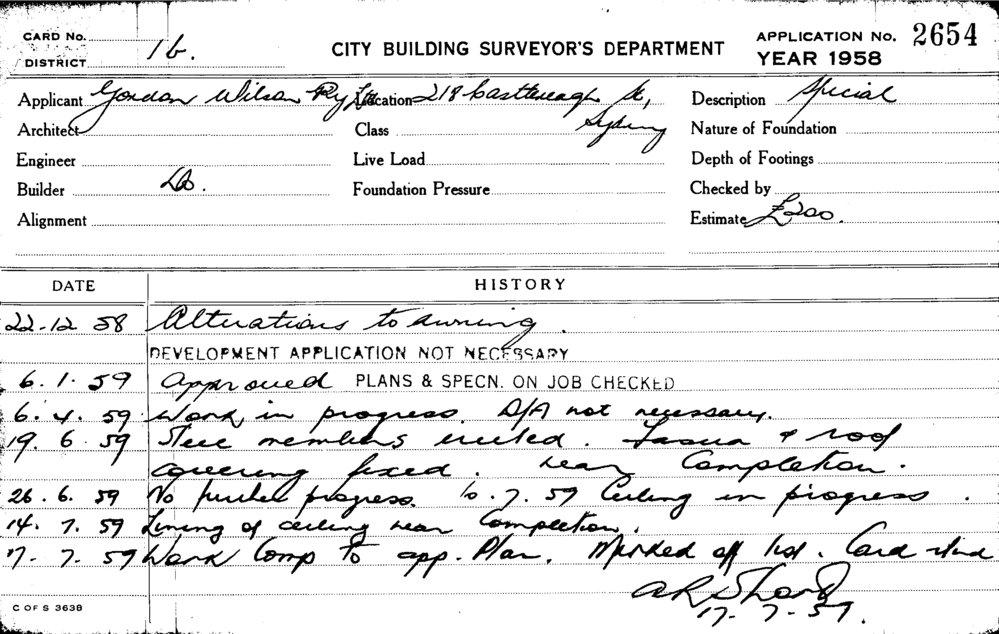 CARD No.
DISTRICT 1b.
CITY BUILDING SURVEYOR'S DEPARTMENT
APPLICATION No. 2654
YEAR 1958
Applicant Gordon Wilson Pty Ltd Location 218 Castlereagh St, Description Special
Architect Class Sydney Nature of Foundation
Engineer Live Load Depth of Footings
Builder Foundation Pressure Checked by
Alignment Estimate £200.
DATE HISTORY
22-12 58 Alterations to awning.
DEVELOPMENT APPLICATION NOT NECESSARY
6.1.59 Approved PLANS & SPECN. ON JOB CHECKED
6.4.59 Work in progress. D/A not necessary.
19.6.59 Steel members erected. Fascia & roof
covering fixed. Near Completion.
26.6.59 No further progress. 10.7.59 Ceiling in progress.
14.7.59 Lining of ceiling near Completion.
17.7.59 Work Comp to app. Plan. Marked off list. Card
17-7-59.
C OF S 3638